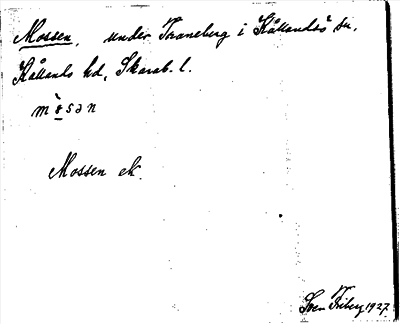 Mossen, under Traneberg i Kållandsö sn.
Kållands hd, Skarab. l.
mòsən
Mossen ek.
Sven Friberg 1927.